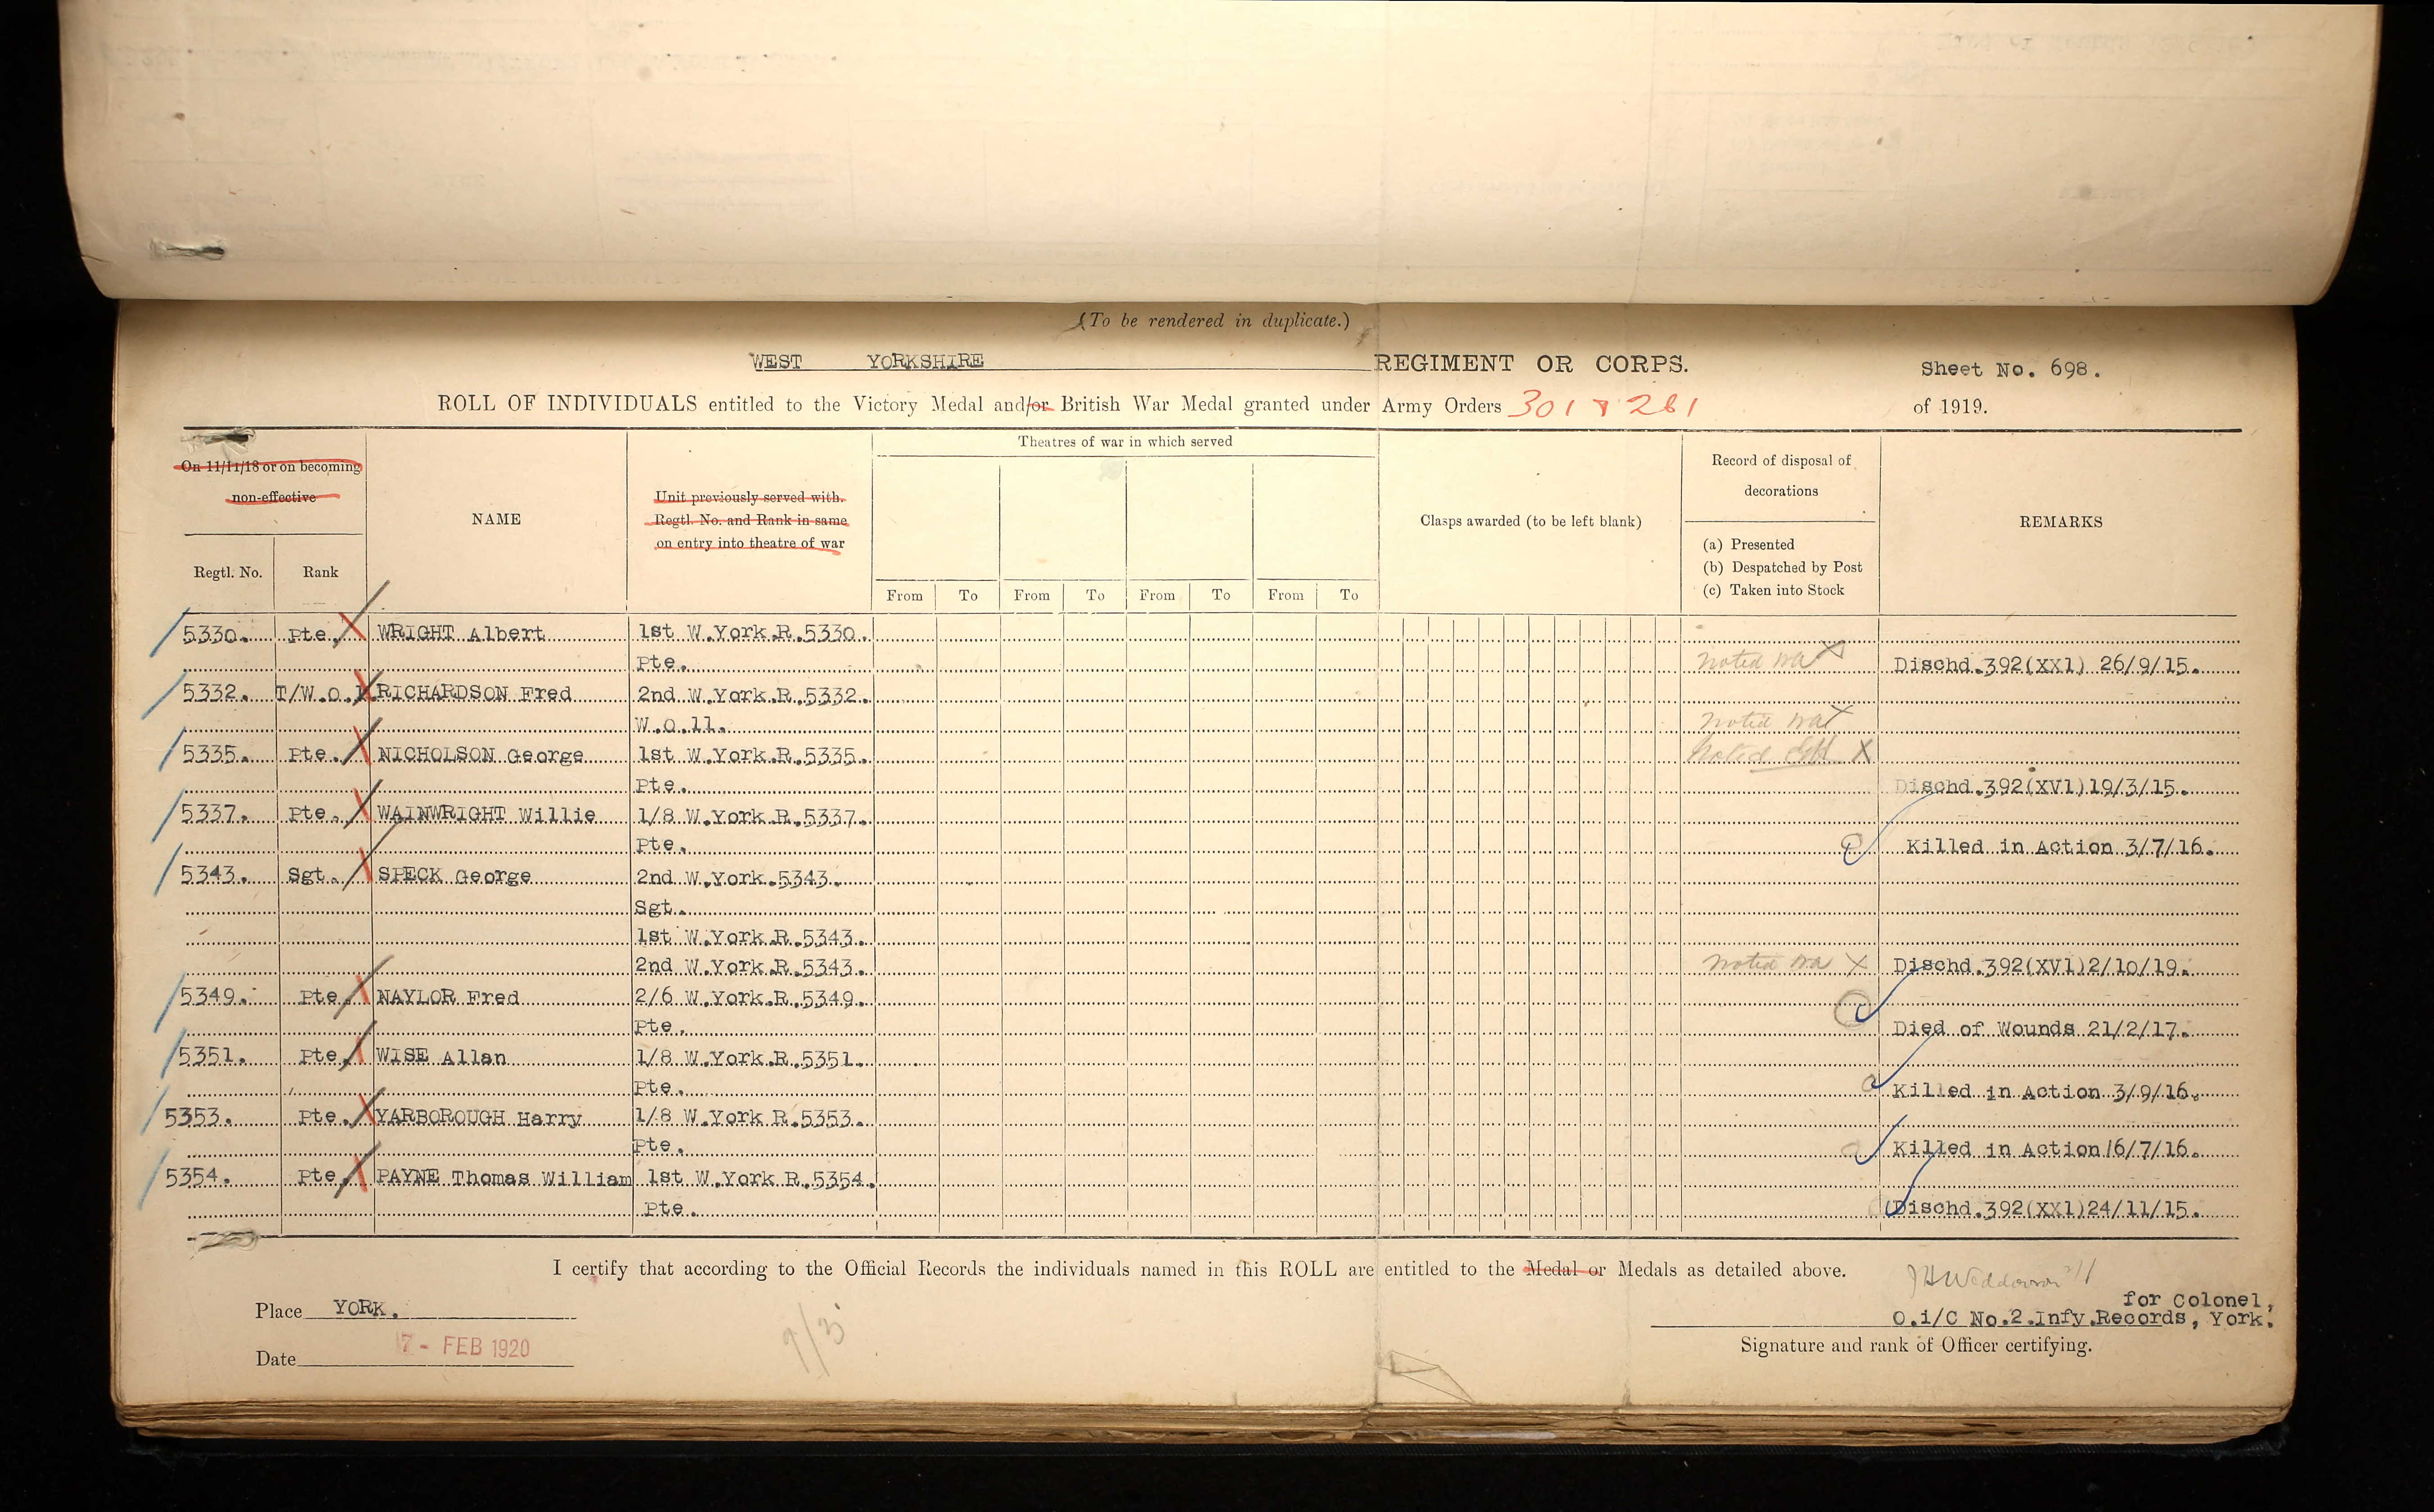 (To be rendered in duplicate.)
WEST YORKSHIRE REGIMENT OR CORPS. Sheet No. 698.
ROLL OF INDIVIDUALS entitled to the Victory Medal and/or British War Medal granted under Army Orders 301 & 261 of 1919.
On 11/11/18 or on becoming non-effective
Regtl. No. Rank
NAME
Unit previously served with.
Regtl. No. and Rank in same
on entry into theatre of war
Theatres of war in which served
From To From To From To From To
Clasps awarded (to be left blank)
Record of disposal of
decorations
(a) Presented
(b) Despatched by Post
(c) Taken into Stock
REMARKS
5330. Pte. WRIGHT Albert 1st W.York.R.5330.
Pte. noted Dischd.392(XX1) 26/9/15.
5332. T/W.O.1. RICHARDSON Fred 2nd W.York.R.5332.
W.O.11. noted
5335. Pte. NICHOLSON George 1st W.York.R.5335. Noted X
Pte. Dischd.392(XV1)19/3/15.
5337. Pte. WAINWRIGHT Willie 1/8 W.York.R.5337.
Pte. Killed in Action 3/7/16.
5343. Sgt. SPECK George 2nd W.York.5343.
Sgt.
1st W.York.R.5343.
2nd W.York.R.5343. noted X Dischd.392(XV1)2/10/19.
5349. Pte. NAYLOR Fred 2/6 W.York.R.5349.
Pte. Died of Wounds 21/2/17.
5351. Pte. WISE Allan 1/8 W.York.R.5351.
Pte. Killed in Action 3/9/16.
5353. Pte. YARBOROUGH Harry 1/8 W.York R.5353.
Pte. Killed in Action 16/7/16.
5354. Pte. PAYNE Thomas William 1st W.York R.5354.
Pte. Dischd.392(XX1)24/11/15.
I certify that according to the Official Records the individuals named in this ROLL are entitled to the Medal or Medals as detailed above.
for Colonel,
Place YORK. O.i/C No.2.Infy.Records, York.
Date 7 - FEB 1920 Signature and rank of Officer certifying.